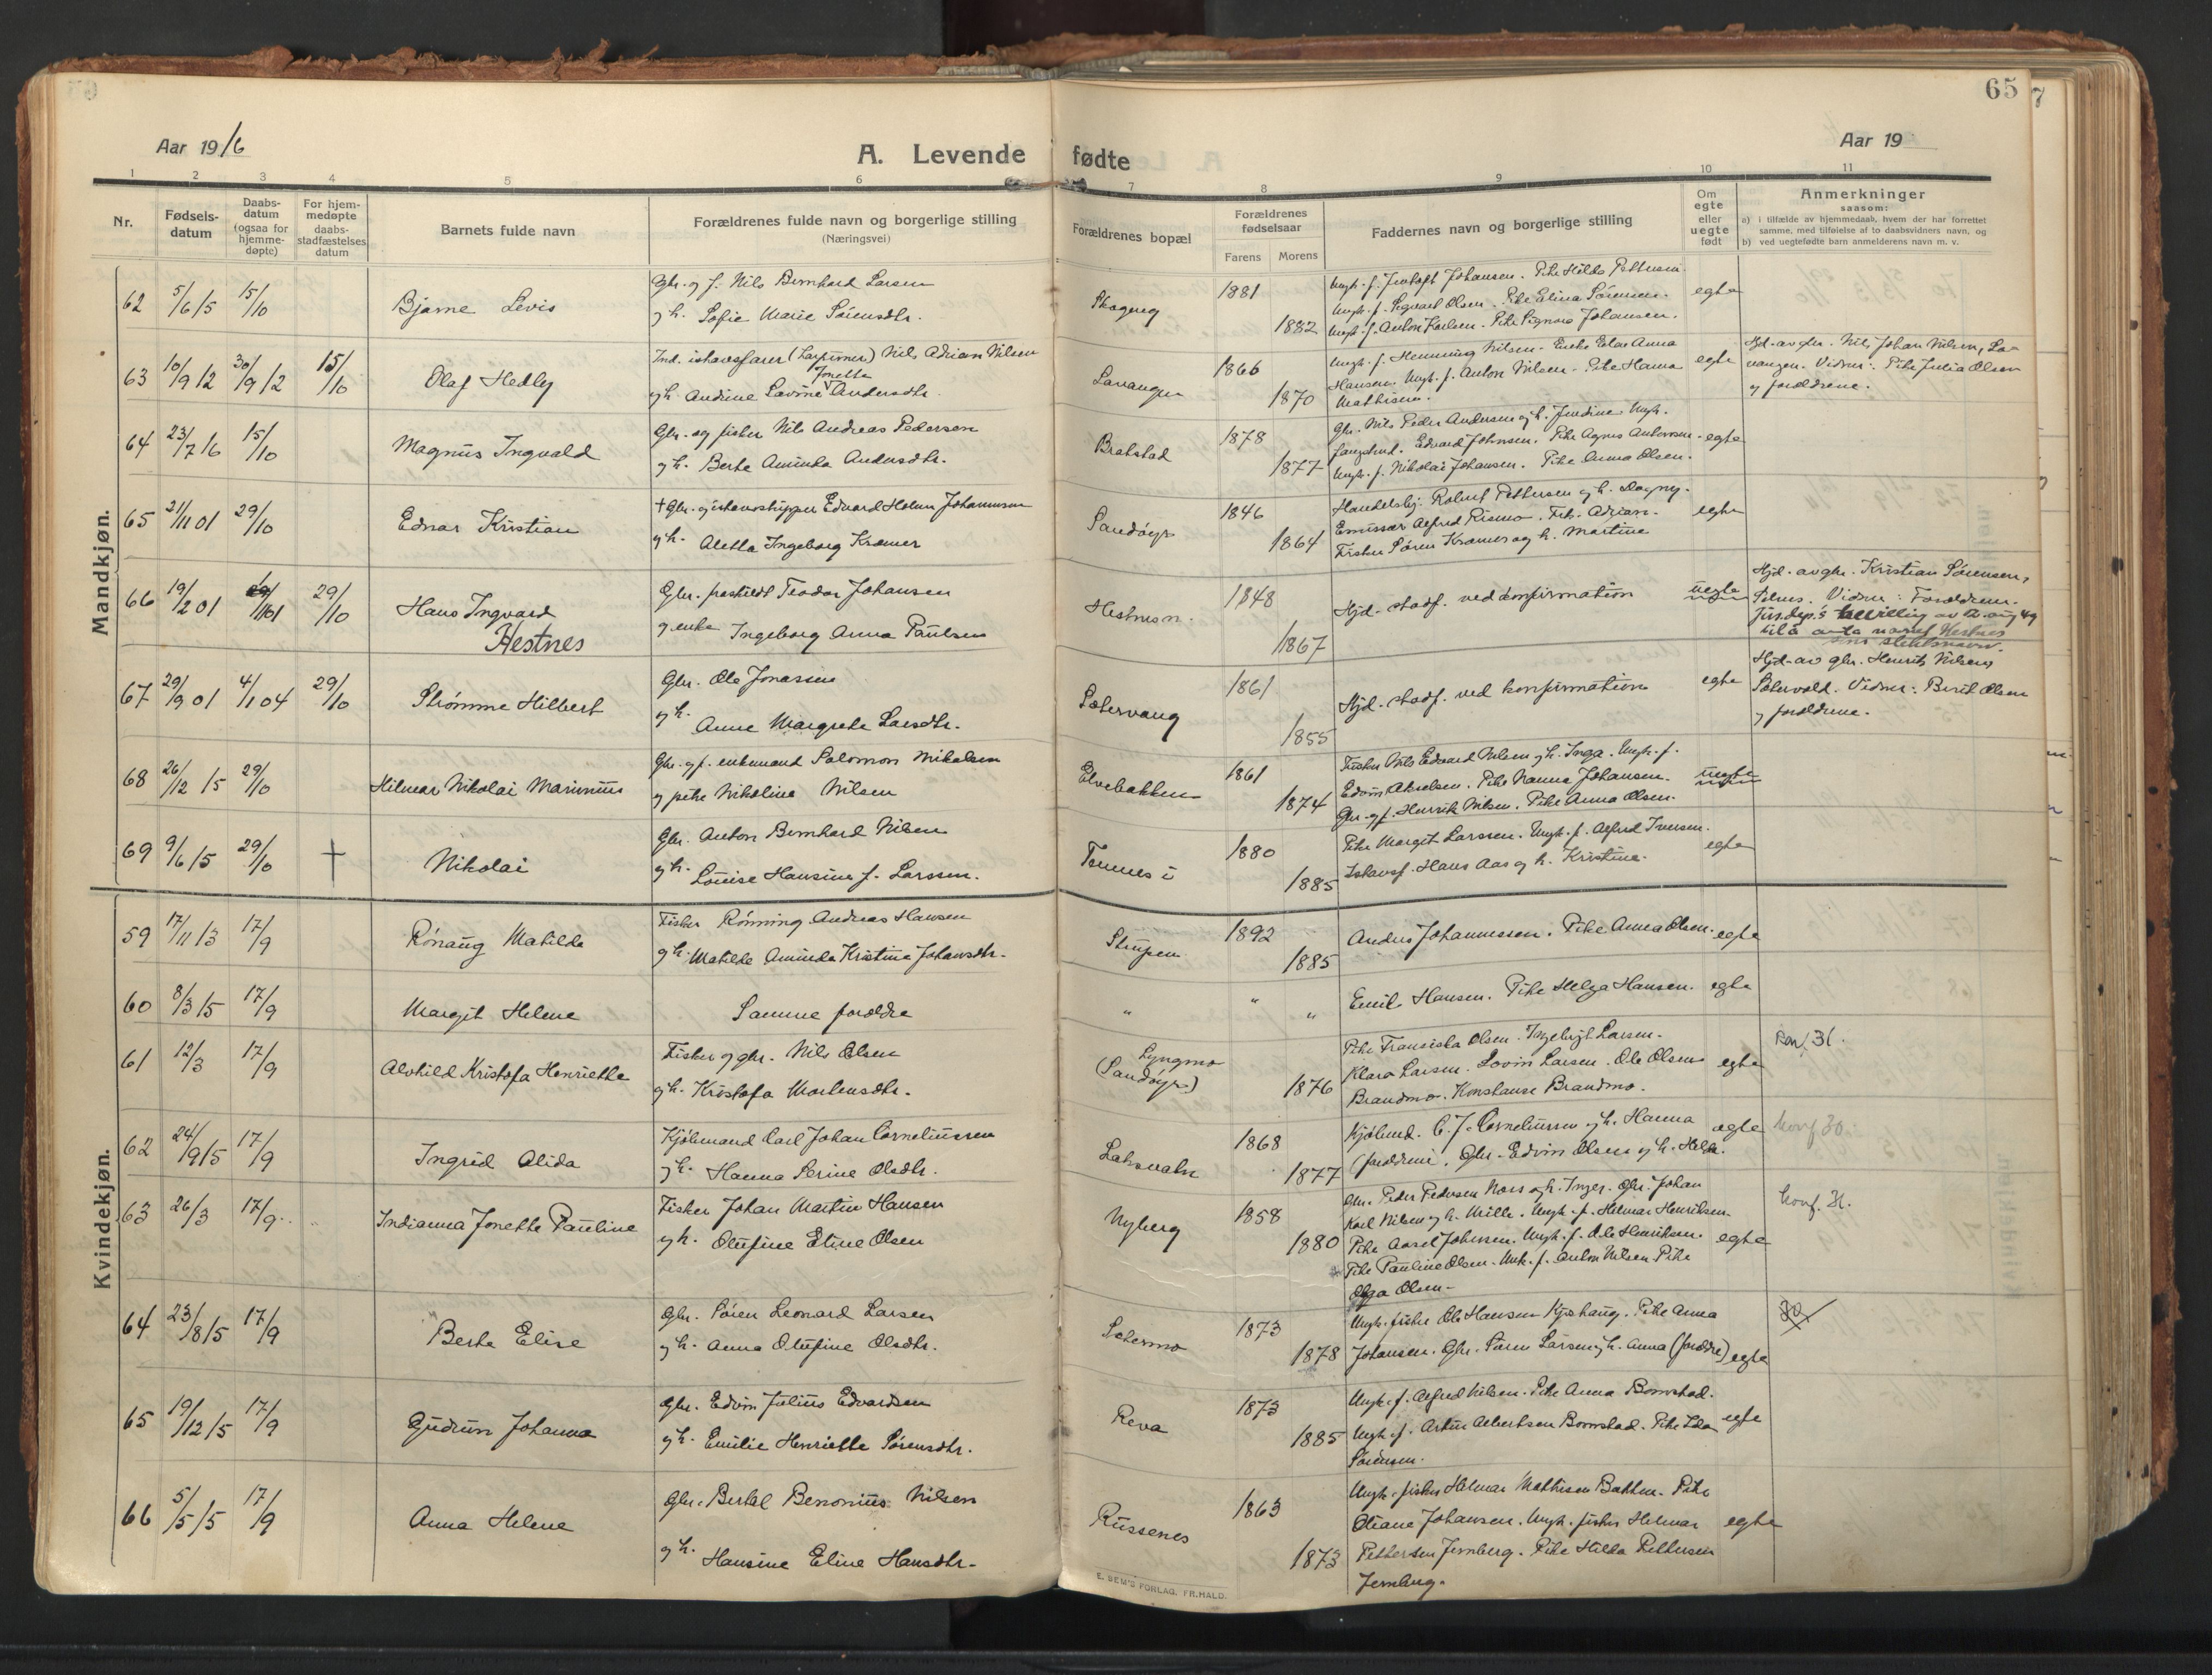 65
Aar 1916
A. Levende fødte
Aar 19
1 2 3 4 5 6 7 8 9 10 11
Nr.
Fødsels-
datum
Daabs-
datum
(ogsaa for
hjemme-
døpte)
For hjem-
medøpte
daabs-
stadfæstelses
datum
Barnets fulde navn
Forældrenes fulde navn og borgerlige stilling
(Næringsvei)
Forældrenes bopæl
Forældrenes
fødselsaar
Farens Morens
Faddernes navn og borgerlige stilling
Om
egte
eller
uegte
født
Anmerkninger
saasom:
a) i tilfælde av hjemmedaab, hvem der har forrettet
samme, med tilføielse af to daabsvidners navn, og
b) ved uegtefødte barn anmelderens navn m. v.
Mandkjøn.
62 5/6 15 15/10 Bjarne Levis
Gbr. og f. Nils Bernhard Larsen
og h. Sofie Marie Sørensdtr.
1881
1882
Ungk. f. Jentoft Johansen. Pike Hilda Pettersen.
Ungk. f. Sigvart Olsen. Pike Elina Sørensen.
Ungk. f. Anton Karlsen. Pike Signora Johansen.
egte
63 10/9 12 30/9 12 15/10 Olaf Hedly
Ind. ishavsfarer (harpuner) Nils Adrian Nilsen
Jonette
og h. Andrine Lavine Andersdtr.
Lavangen
1866
1870
Ungk. f. Henning Nilsen. Enke Elen Anna
Hansen. Ungk. f. Anton Nilsen. Pike Hanna
Mathisen.
egte
Hjd. av gbr. Nils Johan Nilsen, La-
vangen. Vidner: Pike Julia Olsen
og forældrene.
64 23/7 16 15/10 Magnus Ingvald
Gbr. og fisker Nils Andreas Pedersen
og h. Berte Aminda Andersdtr.
Bratstad
1878
1877
Gbr. Nils Peder Andersen og h. Jendine. Ungk.
Edvard Johnsen. Pike Agnes Antonsen.
Ungk. f. Nikolai Johansen. Pike Anna Olsen.
egte
65 21/11 01 29/10 Ednar Kristian
† Gbr. og ishavsskipper Edvard Holm Johannesen
og h. Aletta Ingeborg Kræmer
Sandøyr
1846
1864
Handelsbj. Robert Pettersen og h. Dagny.
Emissær Alfred Rismo. Frk. Adrian.
Fisker Søren Kræmer og h. Martine
egte
66 19/2 01 29/10 Hans Ingvard
Hestnes
Gbr. fraskildt Teodor Johansen
og enke Ingeborg Anna Paulsen
Hestnesn.
1848
1867
Hjd. stadf. ved konfirmation
uegte
Hjd. av gbr. Kristian Sørensen,
Vidner: Forældrene.
Jus.dep.s bevillig av 12. aug 49
til å anta navnet Hestnes
som slektsnavn.
67 29/9 01 4/1 04 29/10 Strømme Hilbert
Gbr. Ole Jonassen
og h. Anne Margrete Larsdtr.
Sætervang
1861
1855
Hjd. stadf. ved konfirmation
egte
Hjd. av gbr. Henrik Nilsen,
Sætervold. Vidner: Berit Olsen
og forældrene.
68 26/12 15 29/10 Hilmar Nikolai Marinius
Gbr. og f. enkemand Salomon Mikalsen
og pike Nikoline Nilsen
Elvebakken
1861
1874
Fisker Nils Edvard Nilsen og h. Inga. Ungk. f.
Edvin Akselsen. Pike Nanna Johansen.
Gbr. og f. Henrik Nilsen. Pike Anna Olsen.
uegte
69 9/6 15 29/10 † Nikolai
Gbr. Anton Bernhard Nilsen
og h. Louise Hansine f. Larssen.
Tennes i
1880
1885
Pike Margit Larssen. Ungk. f. Alfred Iversen.
Ishavsf. Hans Aas og h. Kristine.
egte
Kvindekjøn.
59 17/11 13 17/9 Rønaug Matilde
Fisker Rønning Andreas Hansen
og h. Matilde Aminda Kristine Johansdtr.
Strupen
1892
1885
Anders Johannessen. Pike Anna Olsen.
egte
60 8/3 15 17/9 Margit Helene
Samme forældre
" " "
Emil Hansen. Pike Helga Hansen.
egte
61 12/3 17/9 Alvhild Kristofa Henriette
Fisker og gbr. Nils Olsen
og h. Kristofa Mortensdtr.
Lyngmo
(Sandøyr)
1876
Pike Fransiska Olsen. Ingebrigt Larsen.
Klara Larsen. Lovin Larsen. Ole Olsen
Brandmo. Konstanse Brandmo.
egte
Konf. 31.
62 24/9 15 17/9 Ingrid Alida
Kjøbmand Carl Johan Corneliussen
og h. Hanna Serine Olsdtr.
Laksvatn
1868
1877
Kjøbmd. C. J. Corneliussen og h. Hanna
(forældrene). Gbr. Edvin Olsen og h. Hilda.
egte
konf 30.
63 26/3 17/9 Indianna Jonette Pauline
Fisker Johan Martin Hansen
og h. Olufine Eline Olsen
Nyberg
1858
1880
Gbr. Peder Pedersen Nors og h. Inger. Gbr. Johan
Karl Nilsen og h. Mille. Ungk. f. Helmar Henriksen.
Pike Aasel Johnsen. Ungk. f. Ole Henriksen.
Pike Pauline Olsen. Unk. f. Anton Nilsen Pike
Olga Olsen.
egte
konf. 31.
64 23/8 15 17/9 Berta Elise
Gbr. Søren Leonard Larsen
og h. Anna Olufine Olsdtr.
Sætermo
1873
1878
Ungk. fisker Ole Hansen Kjoshaug. Pike Anna
Johansen. Gbr. Søren Larsen og h. Anna (forældre)
egte
30
65 19/12 15 17/9 Gudrun Johanna
Gbr. Edvin Julius Edvardsen
og h. Emilie Henriette Sørensdtr.
Reva
1873
1885
Ungk. f. Alfred Nilsen. Pike Anna Bomstad.
Ungk. f. Artur Albertsen Bomstad. Pike Ida
Sørensen.
egte
66 5/5 15 17/9 Anna Helene
Gbr. Bertel Benonius Nilsen
og h. Hansine Eline Hansdtr.
Russenes
1863
1873
Ungk. fisker Helmar Mathisen Bakken. Pike
Oliane Johansen. Ungk. fisker Helmar
Pettersen Jernberg. Pike Hilda Pettersen
Jernberg.
egte
E. SEM'S FORLAG, FR.HALD.